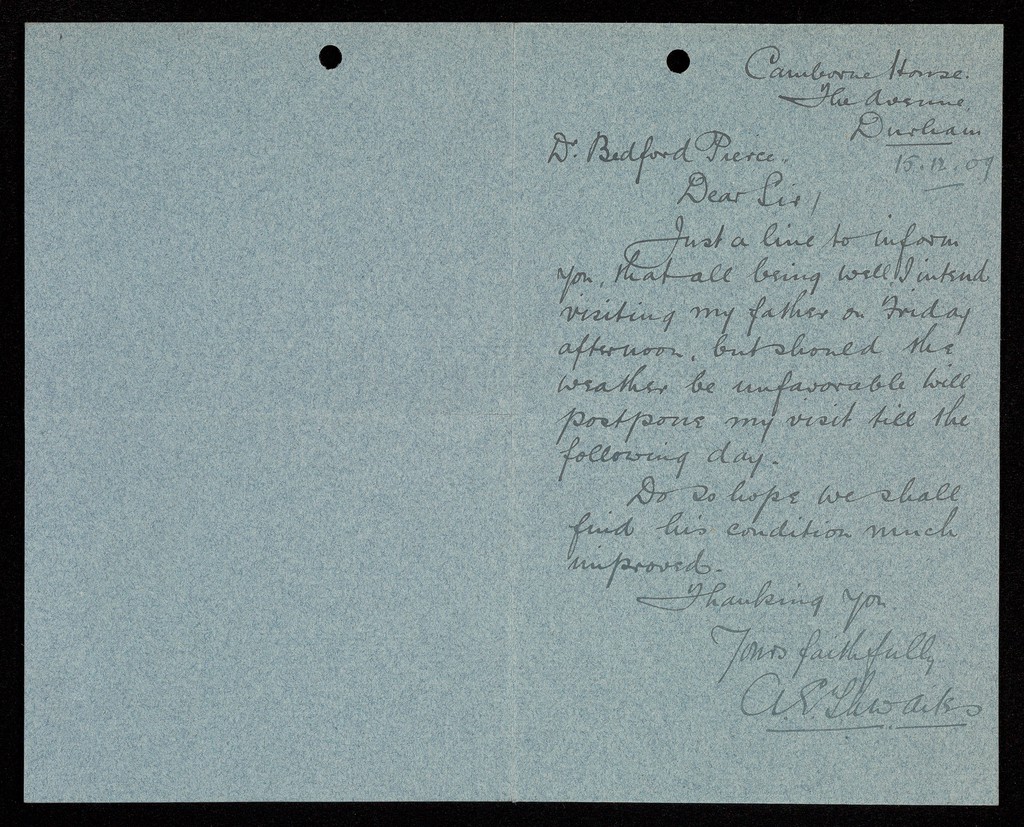 Camborne House.
The Avenue,
Durham
15.12.09
Dr. Bedford Pierce.
Dear Sir/
Just a line to inform
you, that all being well, I intend
visiting my father on Friday
afternoon, but should the
weather be unfavorable will
postpone my visit till the
following day.
Do so hope we shall
find his condition much
improved.
Thanking you
Yours faithfully
A.E. Thwaites